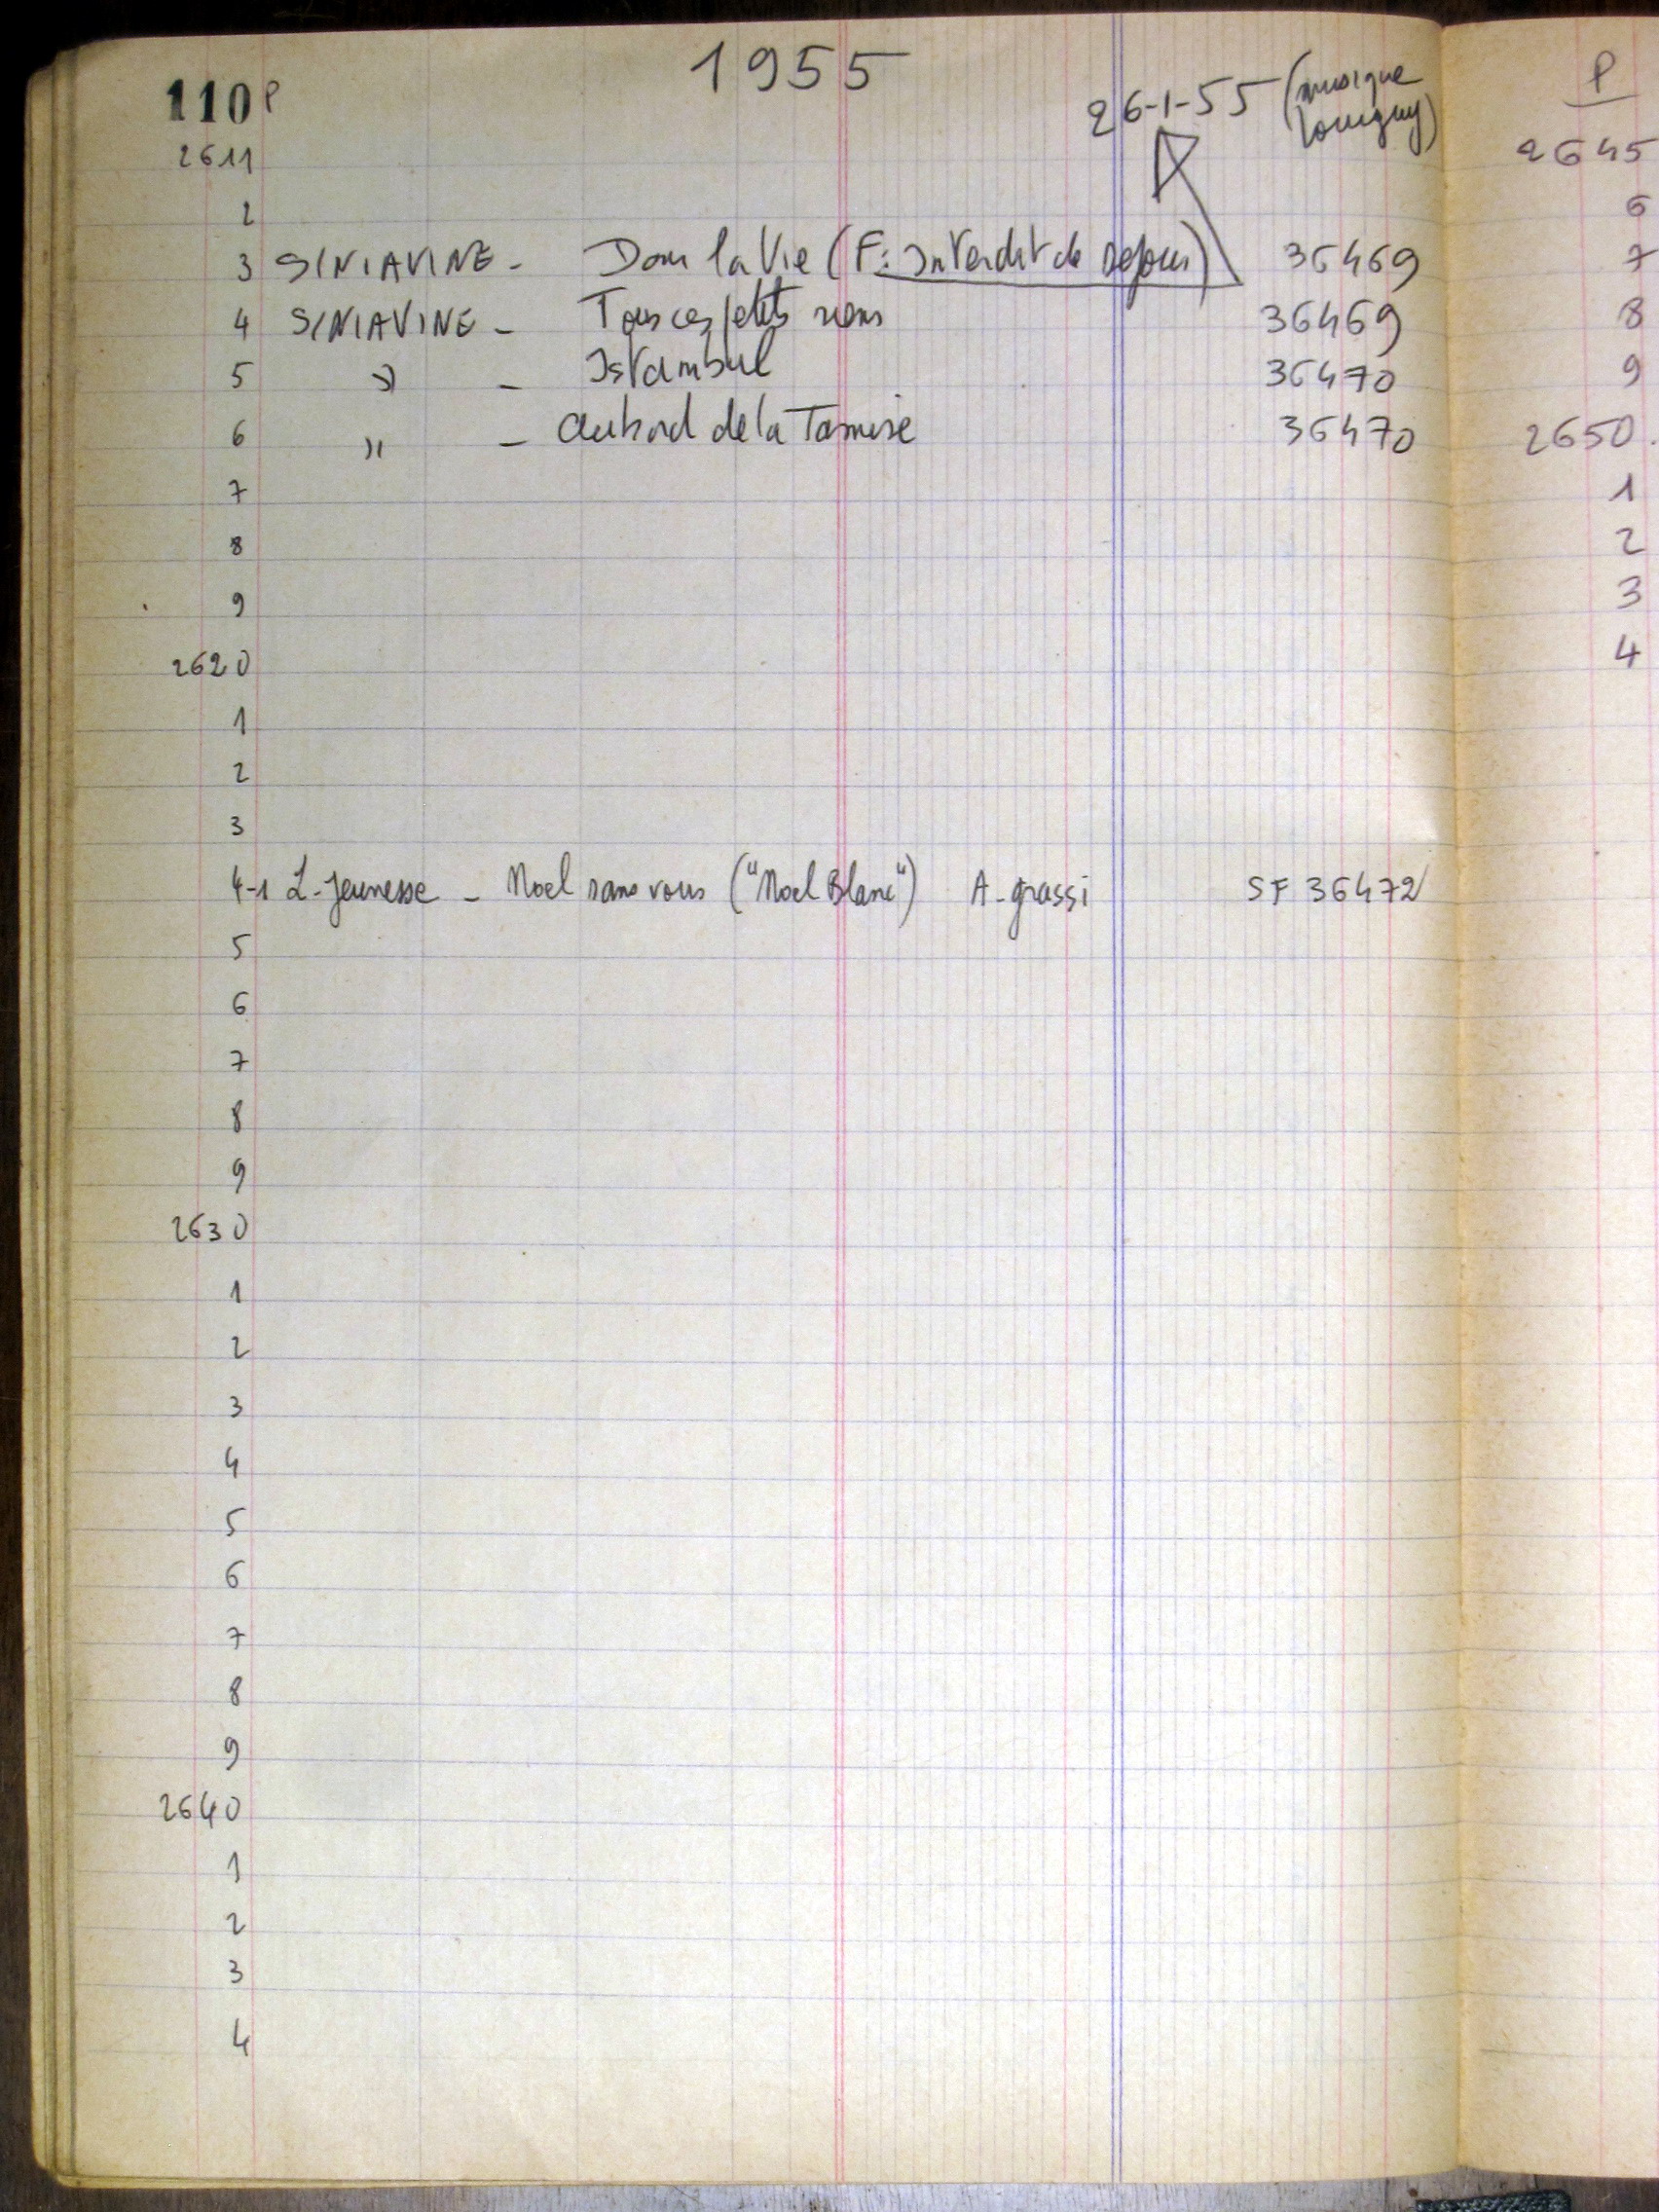 1955
110 P
26-1-55 (musique
Louiguy)
2611
2
3 SINIAVINE - Dans la Vie (F: Interdit de séjour) 36469
4 SINIAVINE - Tous ces petits riens 36469
5 " - Istambul 36470
6 " - Au bord de la Tamise 36470
7
8
9
2620
1
2
3
4-1 L. Jeunesse - Noel sans vous ("Noel Blanc") A. Grassi SF 36472
5
6
7
8
9
2630
1
2
3
4
5
6
7
8
9
2640
1
2
3
4
P
2645
6
7
8
9
2650.
1
2
3
4